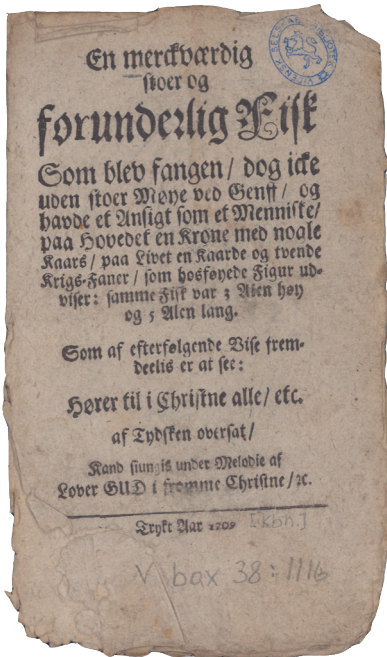 En merckværdig
stoer og
forunderlig Fisk
Som blev fangen/ dog icke
uden stoer Møye ved Genff/ og
havde et Ansigt som et Menniske/
paa Hovedet en Krone med nogle
Kaars/ paa Livet en Kaarde og tvende
Krigs-Faner/ som hosføyede Figur ud-
viser: samme Fisk var 3 Alen høy
og 5 Alen lang.
Som af efterfølgende Vise frem-
deelis er at see:
Hører til i Christne alle/ etc.
af Tydsken oversat/
Kand siungis under Melodie af
Lover GUD i fromme Christne/ ꝛc.
Trykt Aar 1709 [Kbh.]
V. bax 38: 1116